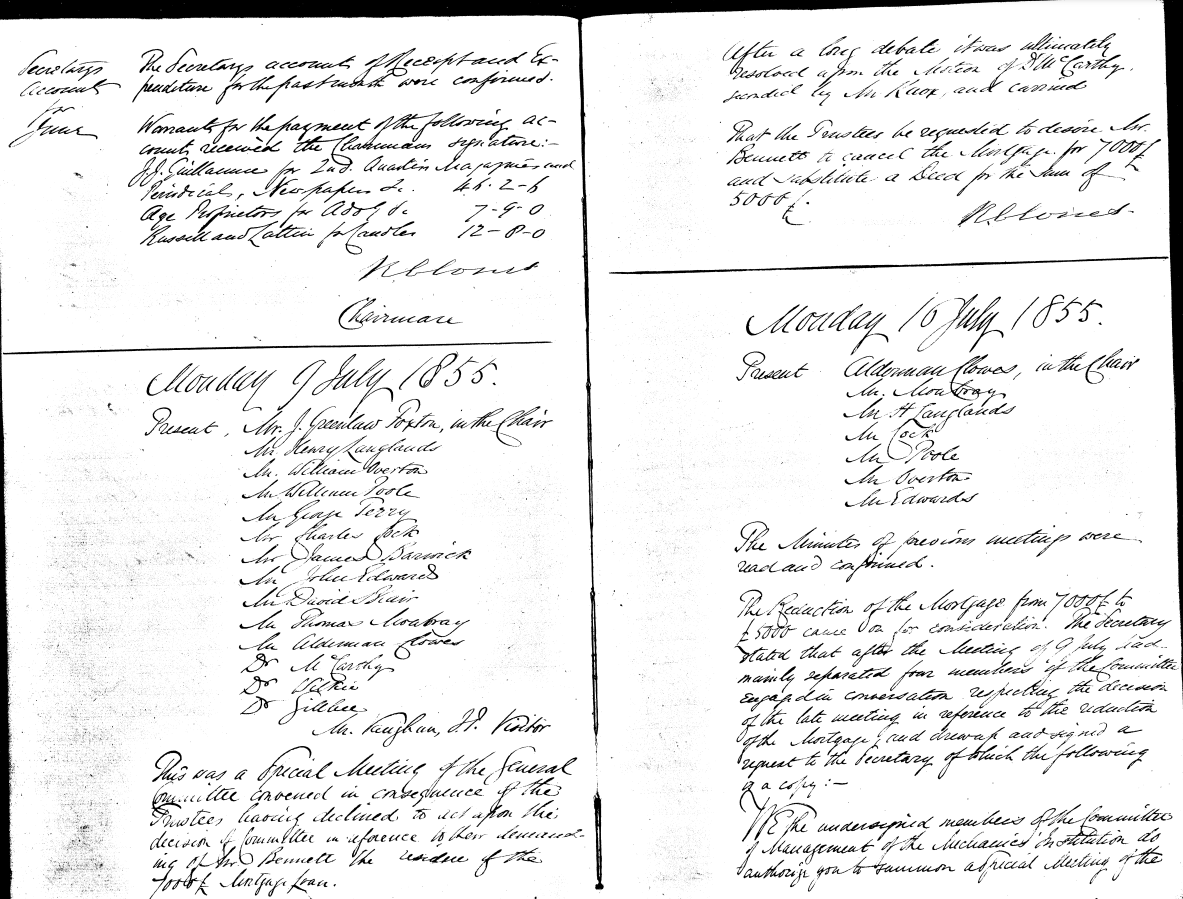 Secretarys
Account
for
June
The Secretarys accounts of Receipt and Ex-
penditure for the past month were confirmed.
Warrants for the payment of the following ac-
counts received the Chairmans signature:-
J.J. Guillaume for 2nd. Quarters Magazines and
Periodical, Newspapers &c. 46-2-6
Age Proprietors for Adv. &c 7-9-0
Russell and Lattin for Candles 12-8-0
Chairman
Monday 9 July 1855.
Present, Mr. J. Greenlaw Foxton, in the Chair
Mr Henry Langlands
Mr. William Overton
Mr William Poole
Mr George Terry
Mr Charles Cock
Mr James Barwick
Mr John Edwards
Mr David Blair
Mr Thomas Moubray
Mr Alderman Clowes
Dr McCarthy
Dr Wilkie
Dr Gilbee
Mr. Vaughan, J.P. Visitor
This was a Special Meeting of the General
Committee convened in consequence of the
Trustees having declined to act upon the
decision of Committee in reference to their demand-
ing of Mr Bennett the residue of the
7000£ Mortgage Loan.
After a long debate it was ultimately
resolved upon the Motion of Dr McCarthy,
seconded by Mr Knox, and carried
That the Trustees be requested to desire Mr.
Bennett to cancel the Mortgage for 7000£
and substitute a Deed for the Sum of
5000£.
Monday 16 July 1855.
Present Alderman Clowes, in the Chair
Mr. Moubray
Mr H Langlands
Mr Cock
Mr Poole
Mr Overton
Mr Edwards
The Minutes of previous meetings were
read and confirmed.
The Reduction of the Mortgage from 7000£ to
£5000 came on for consideration. The Secretary
stated that after the Meeting of 9 July had
mainly separated four members of the Committee
engaged in conversation respecting the decision
of the late meeting in reference to the reduction
of the Mortgage, and drew up and signed a
request to the Secretary of which the following
is a copy:-
WE the undersigned members of the Committee
of Management of the Mechanics' Institution do
authorize you to summon a special Meeting of the